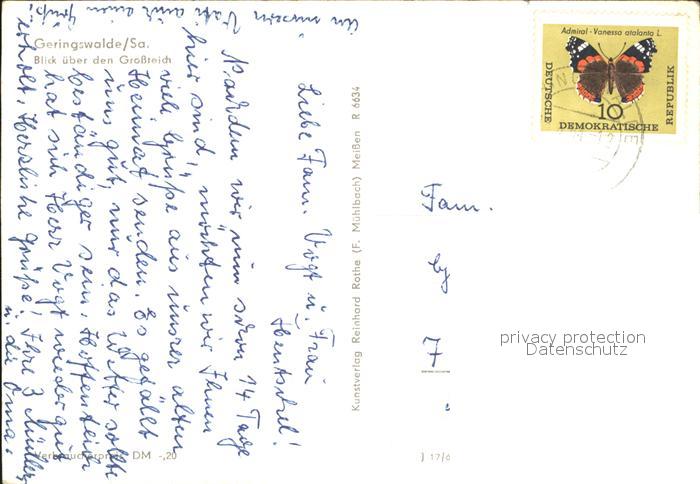 Geringswalde/Sa.
Blick über den Großteich
Liebe Fam. Vogt u. Frau
Hentschel!
Nachdem wir nun schon 14 Tage
hier sind, möchten wir Ihnen
viele Grüße aus unsrer alten
Heimat senden. Es gefällt
uns gut, nur das Wetter sollte
beständiger sein. Hoffentlich
hat sich Herr Vogt wieder gut
erholt. Herzliche Grüße! Ihre 3 Müllers
u. die Oma.
Vati auch einen
Kunstverlag Reinhard Rothe (F. Mühlbach) Meißen R 6634
Verbraucherpreis DM -,20
J 17/6
Admiral - Vanessa atalanta L.
DEUTSCHE
10
DEMOKRATISCHE
REPUBLIK
Fam.
7
privacy protection
Datenschutz